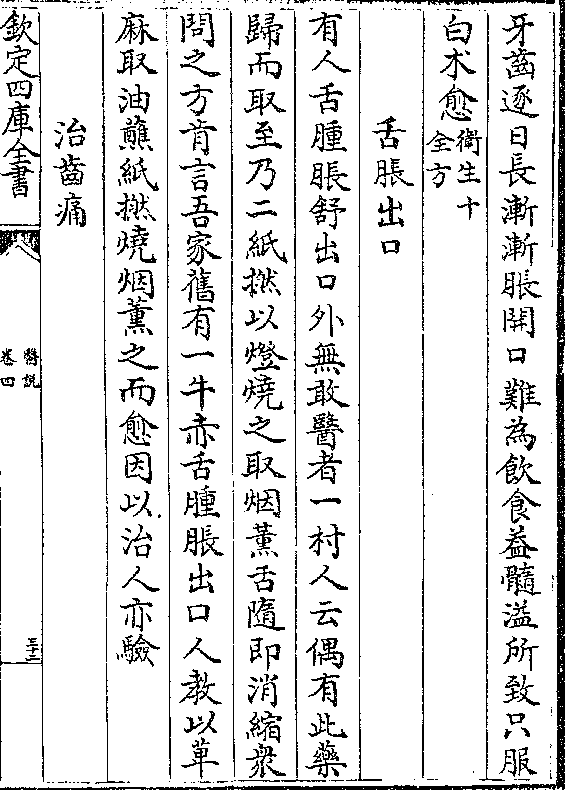 牙齒逐日長漸漸脹開口難為飲食益髓溢所致只服
白朮愈衛生十全方
舌脹出口
有人舌腫脹舒出口外無敢醫者一村人云偶有此藥
歸而取至乃二紙撚以燈燒之取烟薰舌隨即消縮衆
問之方肯言吾家舊有一牛赤舌腫脹出口人教以萆
麻取油蘸紙撚燒烟薰之而愈因以治人亦驗
治齒痛
欽定四庫全書
醫説
卷四
三十二